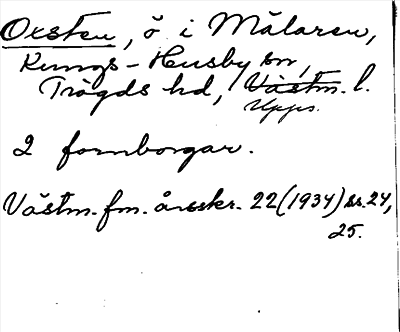 Oxsten, ö i Mälaren,
Kungs-Husby sn,
Trögds hd, Västm. l.
Upps.
2 fornborgar.
Västm. fm. årsskr. 22 (1934) ss. 24,
25.